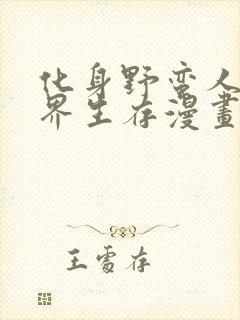 化身野蛮人
界生存漫畫
王雪存